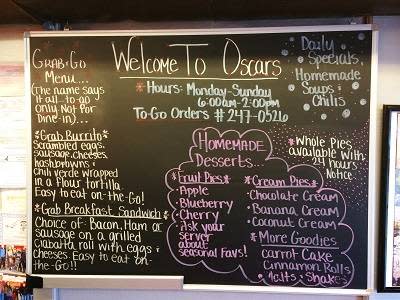 Welcome To Oscars
*Hours: Monday-Sunday
6:00am-2:00pm
To-Go Orders # 247-0526
Grab-Go
Menu...
(The name says
it all-to-go
only. Not for
Dine-in)...
*Grab Burrito*
Scrambled eggs,
sausage, cheeses,
hashbrowns &
chili verde wrapped
in a flour tortilla.
Easy to eat on-the-Go!
*Grab Breakfast Sandwich*
Choice of: Bacon, Ham or
sausage on a grilled
Ciabatta roll with eggs &
cheeses. Easy to eat on-
the-Go!!
Daily
Specials,
Homemade
Soups &
Chilis
Homemade
Desserts...
*Fruit Pies*
•Apple
•Blueberry
•Cherry
*Ask your
server
about
seasonal favs!
*Cream Pies*
Chocolate Cream
•Banana Cream
•Coconut Cream
*More Goodies
Carrot Cake
Cinnamon Rolls
•Malts & Shakes
*Whole Pies
available with
24 hours
Notice